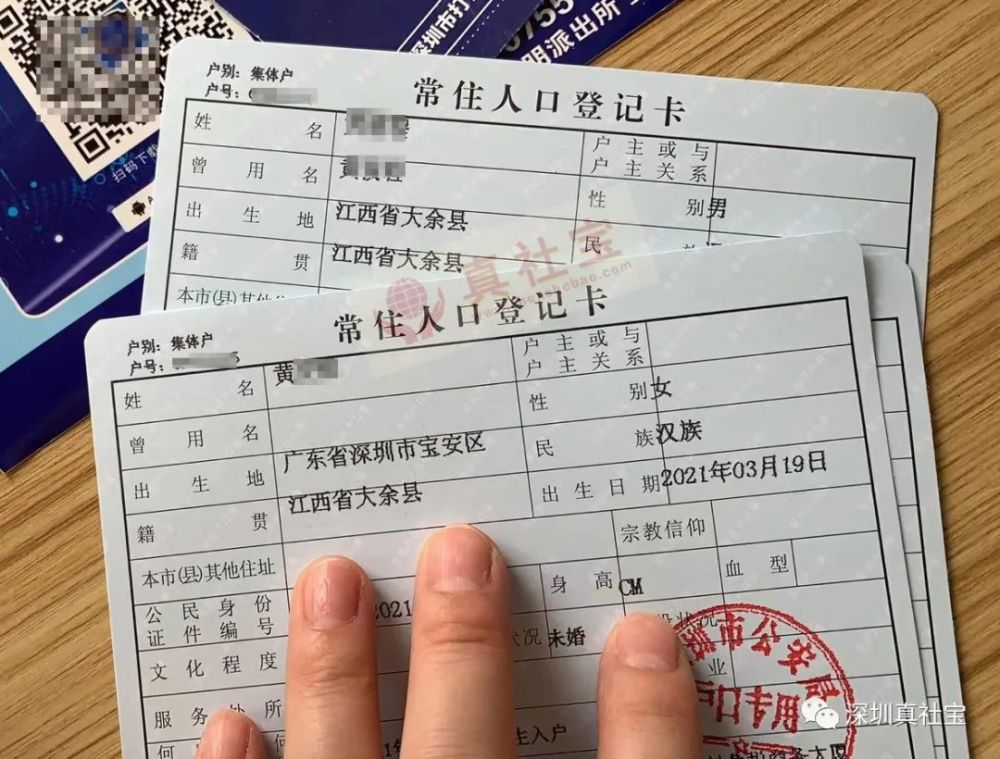 深圳市打
0755
明派出所
扫码下载
户别：集体户
常住人口登记卡
户号：
姓名
户主或与户主关系
曾用名 黄
性别 男
出生地 江西省大余县
民
籍贯 江西省大余县
本市(县)其他住
真社宝
户别：集体户
常住人口登记卡
户号：
姓名 黄
户主或与户主关系
曾用名
性别 女
出生地 广东省深圳市宝安区
民族 汉族
籍贯 江西省大余县
出生日期 2021年03月19日
本市(县)其他住址
宗教信仰
公民身份证件编号 2021
身高 CM
血型
文化程度
状况 未婚
状况
服务处所
业
何
生入户
圳市公安局
户口专用
深圳真社宝